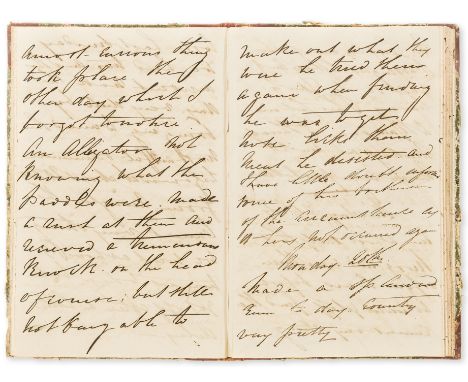 A most curious thing
took place the
other day which I
forgot to notice
An Alligator not
knowing what the
Paddles were. made
a rush at them and
received a tremendous
knock. on the head
of course; but still
not being able to
make out what they
were he tried them
again when finding
he was to get
more kicks than
he desisted. and
I have little doubt
of the circumstances
has not occurred again
Monday
Made a splendid
Run to day. County
very pretty